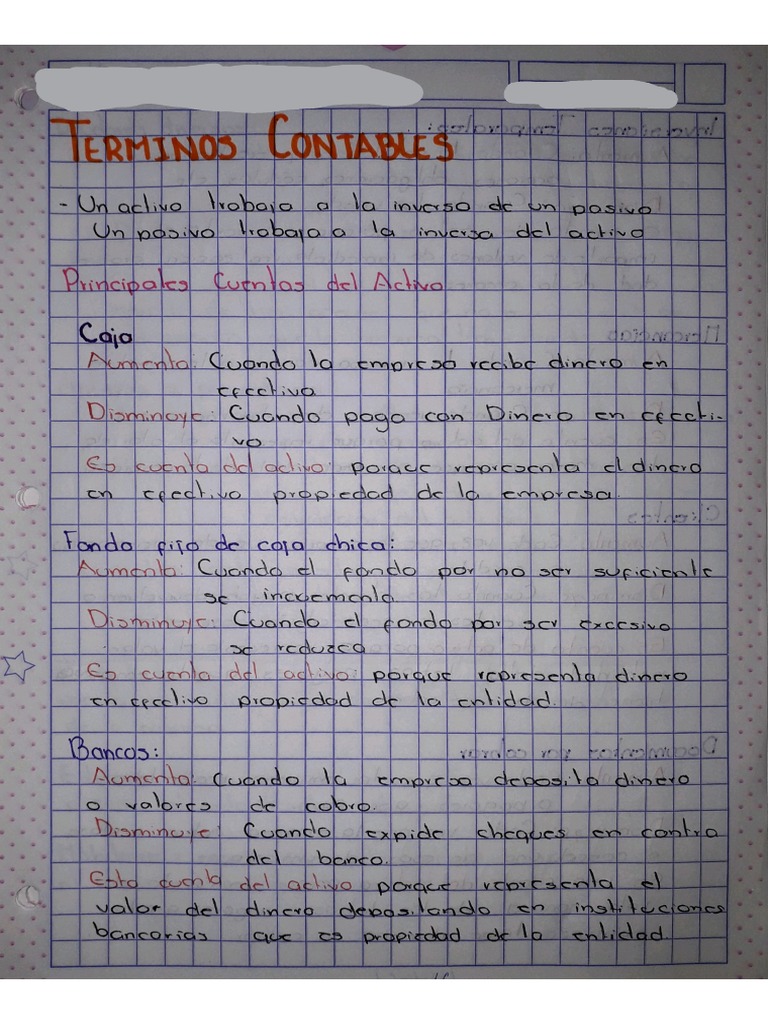 TERMINOS CONTABLES
- Un activo trabaja a la inversa de un pasivo
Un pasivo trabaja a la inversa del activo
Principales Cuentas del Activo
Caja
Aumenta: Cuando la empresa recibe dinero en
efectivo
Disminuye: Cuando paga con Dinero en efecti-
vo
Es cuenta del activo: porque representa el dinero
en efectivo propiedad de la empresa.
Fondo fijo de caja chica:
Aumenta: Cuando el fondo por no ser suficiente
se incrementa.
Disminuye: Cuando el fondo por ser excesivo
se reduzca
Es cuenta del activo: porque representa dinero
en efectivo propiedad de la entidad.
Bancos:
Aumenta: Cuando la empresa deposita dinero
o valores de cobro.
Disminuye: Cuando expide cheques en contra
del banco.
Esta cuenta del activo porque representa el
valor del dinero depositando en instituciones
bancarias que es propiedad de la entidad.